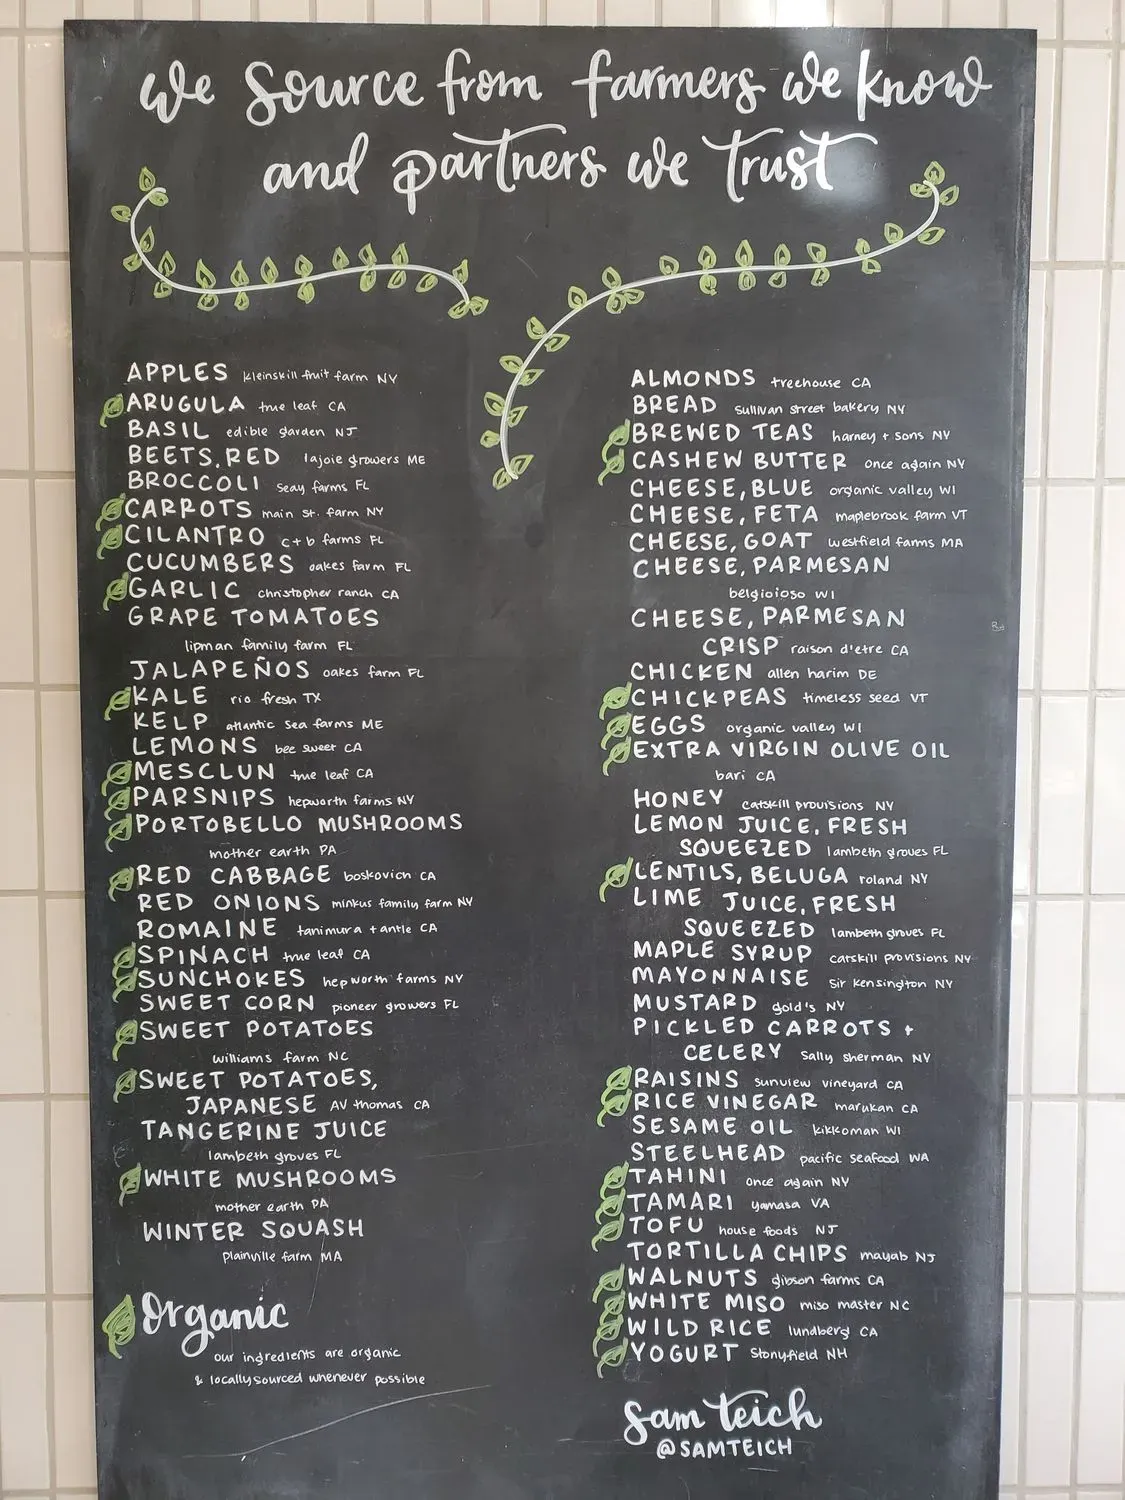 we source from farmers we know
and partners we trust
APPLES kleinskill fruit farm NY
ARUGULA true leaf CA
BASIL edible garden NJ
BEETS, RED lajoie growers ME
BROCCOLI seay farms FL
CARROTS main st. farm NY
CILANTRO c+b farms FL
CUCUMBERS oakes farm FL
GARLIC christopher ranch CA
GRAPE TOMATOES
lipman family farm FL
JALAPEÑOS oakes farm FL
KALE rio fresh TX
KELP atlantic sea farms ME
LEMONS bee sweet CA
MESCLUN true leaf CA
PARSNIPS hepworth farms NY
PORTOBELLO MUSHROOMS
mother earth PA
RED CABBAGE boskovich CA
RED ONIONS minkus family farm NY
ROMAINE tanimura + antle CA
SPINACH true leaf CA
SUNCHOKES hepworth farms NY
SWEET CORN pioneer growers FL
SWEET POTATOES
williams farm NC
SWEET POTATOES,
JAPANESE AV thomas CA
TANGERINE JUICE
lambeth groves FL
WHITE MUSHROOMS
mother earth PA
WINTER SQUASH
plainville farm MA
Organic
our ingredients are organic
& locally sourced whenever possible
ALMONDS treehouse CA
BREAD sullivan street bakery NY
BREWED TEAS harney + sons NY
CASHEW BUTTER once again NY
CHEESE, BLUE organic valley WI
CHEESE, FETA maplebrook farm VT
CHEESE, GOAT westfield farms MA
CHEESE, PARMESAN
belgioioso WI
CHEESE, PARMESAN
CRISP raison d'etre CA
CHICKEN allen harim DE
CHICKPEAS timeless seed VT
EGGS organic valley WI
EXTRA VIRGIN OLIVE OIL
bari CA
HONEY catskill provisions NY
LEMON JUICE, FRESH
SQUEEZED lambeth groves FL
LENTILS, BELUGA roland NY
LIME JUICE, FRESH
SQUEEZED lambeth groves FL
MAPLE SYRUP catskill provisions NY
MAYONNAISE Sir Kensington NY
MUSTARD gold's NY
PICKLED CARROTS +
CELERY Sally sherman NY
RAISINS sunview vineyard CA
RICE VINEGAR marukan CA
SESAME OIL kikkoman WI
STEELHEAD pacific seafood WA
TAHINI once again NY
TAMARI yamasa VA
TOFU house foods NJ
TORTILLA CHIPS mayab NJ
WALNUTS gibson farms CA
WHITE MISO miso master NC
WILD RICE lundberg CA
YOGURT Stonyfield NH
Sam Teich
@SAMTEICH